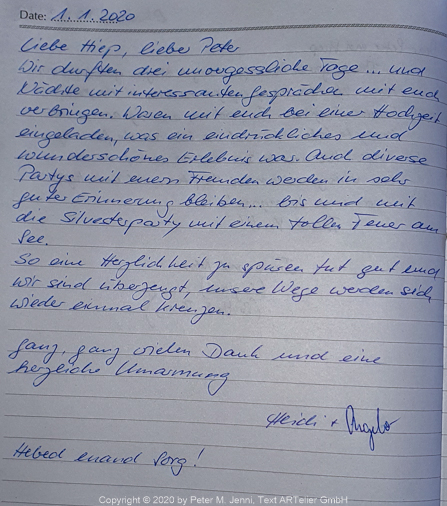 Date: 1.1.2020
Liebe Hiep, lieber Peter
Wir durften drei unvergessliche Tage... und
Nächte mit interessanten Gesprächen mit euch
verbringen. Waren mit euch bei einer Hochzeit
eingeladen, was ein eindrückliches und
wunderschönes Erlebnis war. Auch diverse
Partys mit euern Freunden werden in sehr
guter Erinnerung bleiben... bis und mit
die Silvesterparty mit einem tollen Feuer am
See.
So eine Herzlichkeit zu spüren tut gut und
wir sind überzeugt, unsere Wege werden sich
wieder einmal kreuzen.
Ganz, ganz vielen Dank und eine
herzliche Umarmung
Heidi + Angelo
Hebed enand Sorg!
Copyright © 2020 by Peter M. Jenni, Text ARTelier GmbH